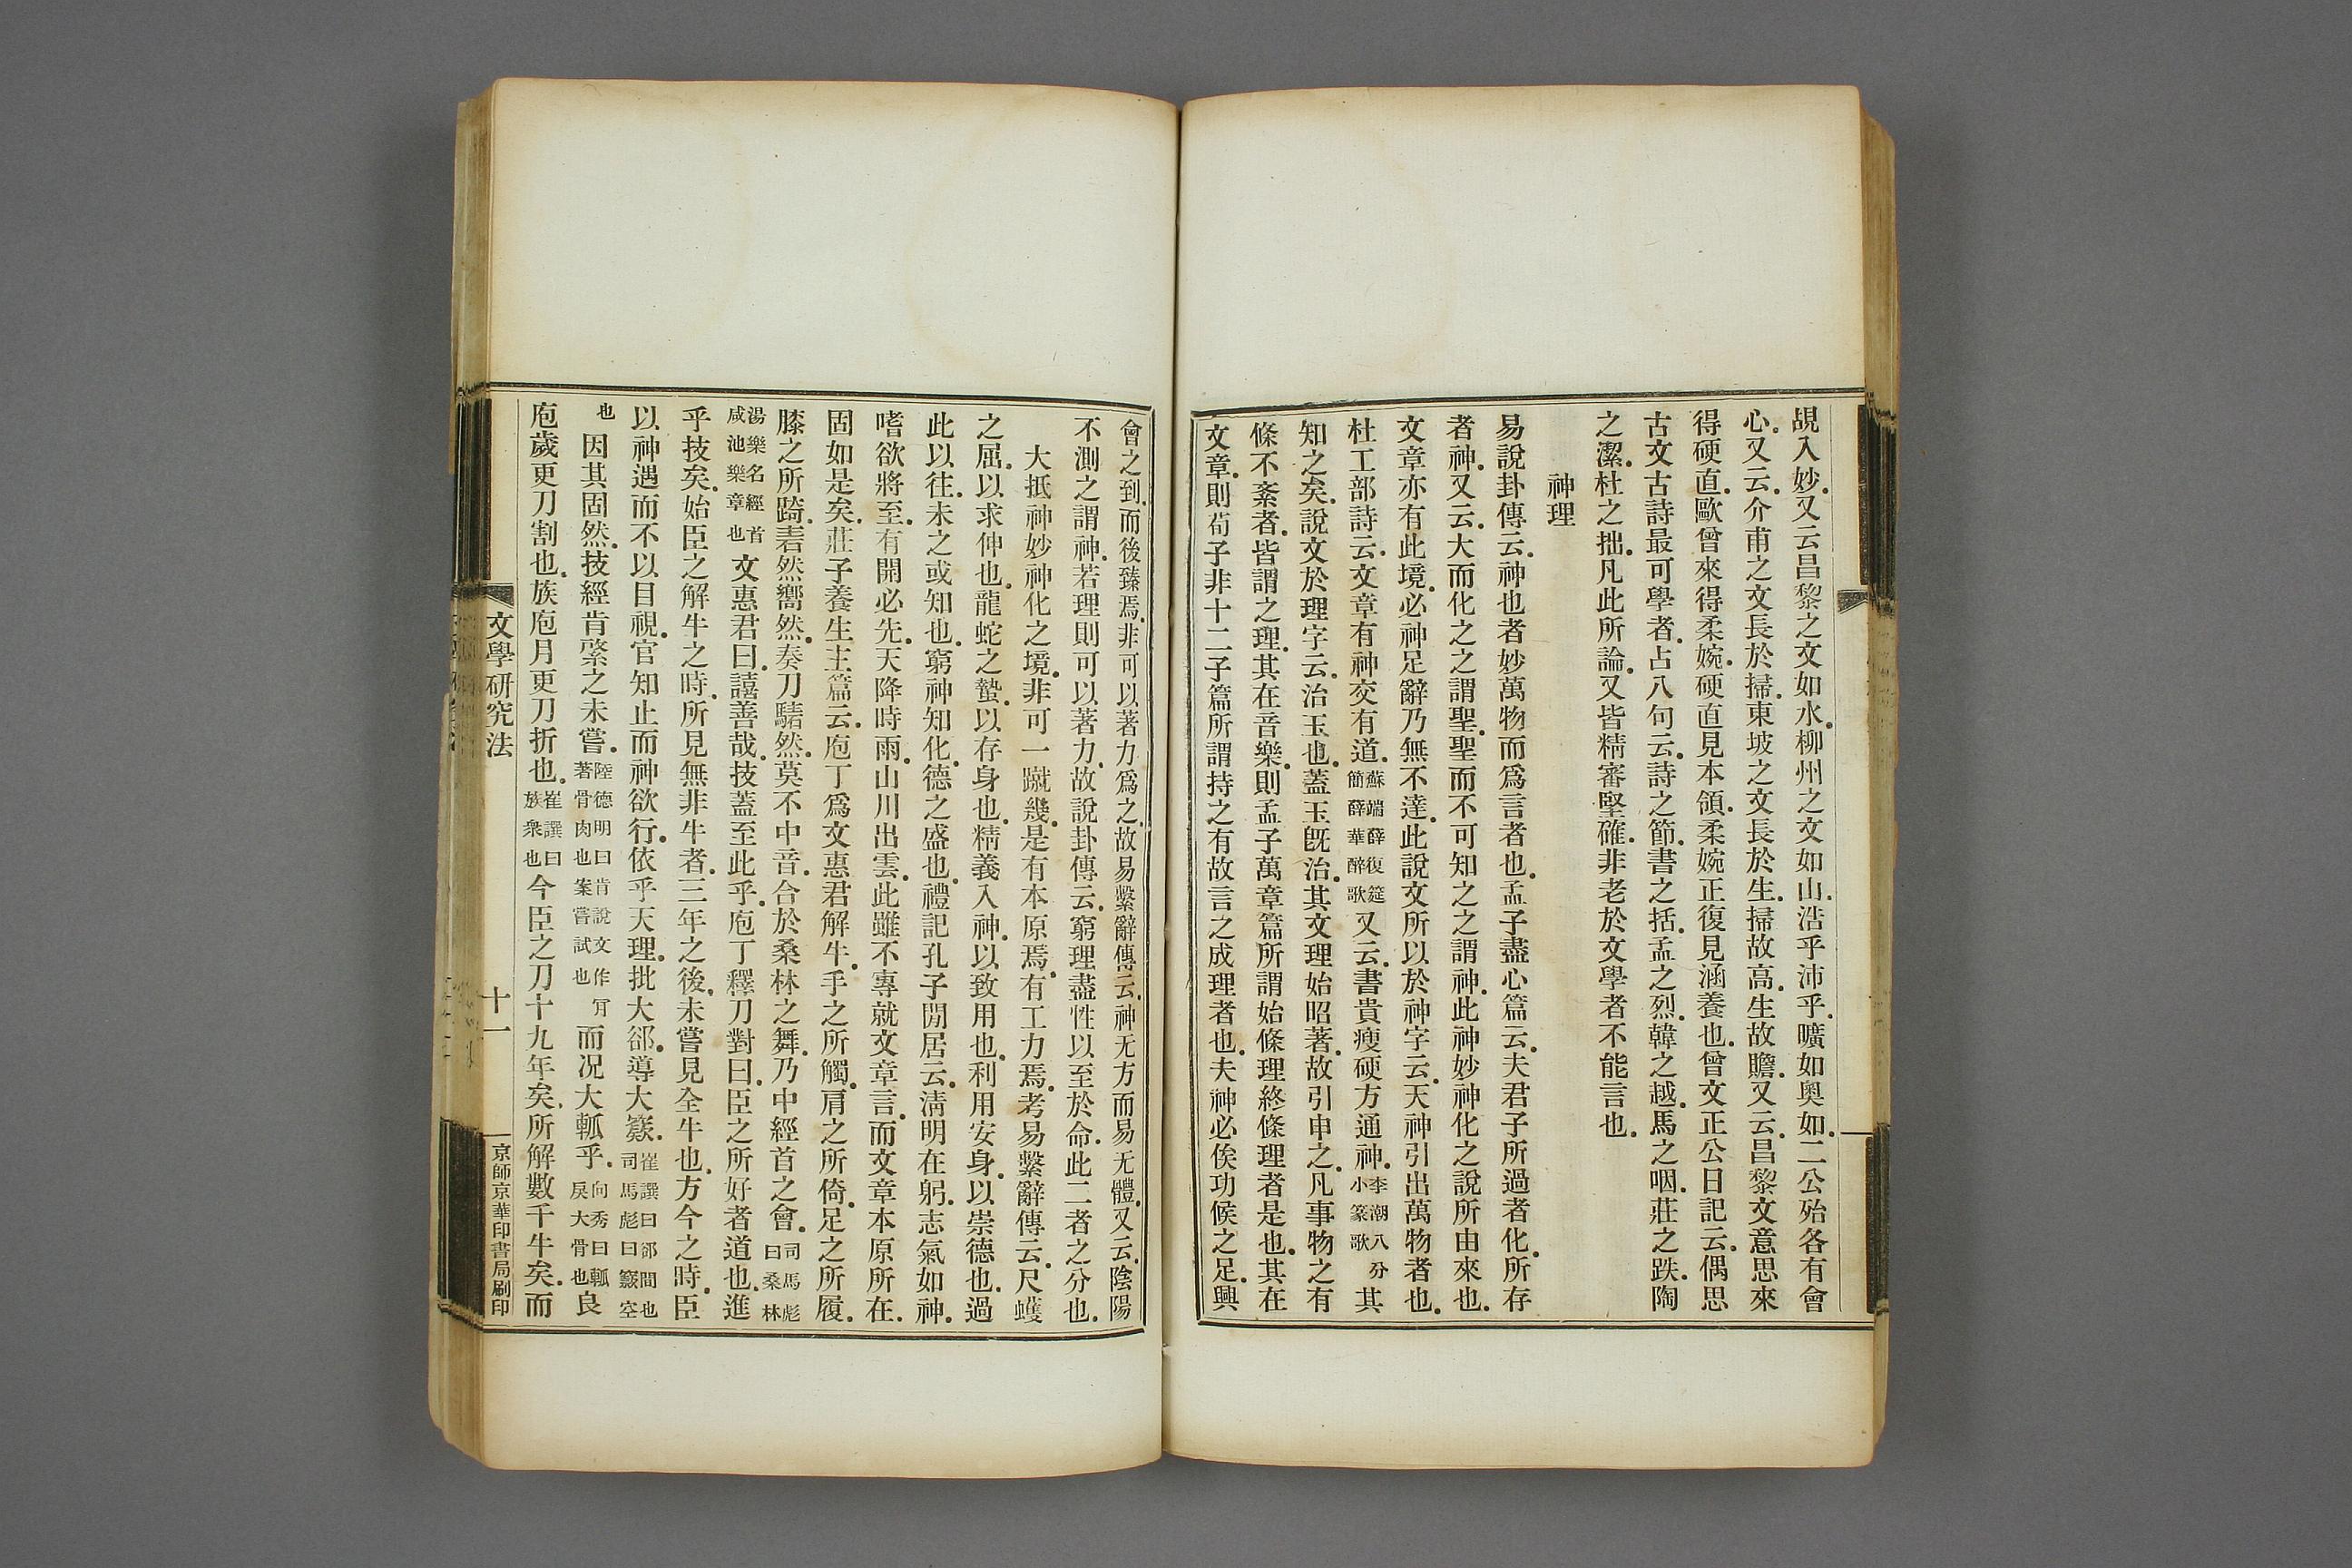 覘入妙又云昌黎之文如水柳州之文如山浩乎沛乎曠如奧如二公殆各有會
心又云介甫之文長於掃東坡之文長於生掃故高生故贍又云昌黎文意思來
得硬直歐曾來得柔婉硬直見本領柔婉正復見涵養也曾文正公日記云偶思
古文古詩最可學者占八句云詩之節書之括孟之烈韓之越馬之咽莊之跌陶
之潔杜之拙凡此所論又皆精審堅確非老於文學者不能言也
神理
易說卦傳云神也者妙萬物而爲言者也孟子盡心篇云夫君子所過者化所存
者神又云大而化之之謂聖聖而不可知之之謂神此神妙神化之說所由來也
文章亦有此境必神足辭乃無不達此說文所以於神字云天神引出萬物者也
杜工部詩云文章有神交有道蘇端薛復筵簡薛華醉歌又云書貴瘦硬方通神李潮八分小篆歌其
知之矣說文於理字云治玉也蓋玉旣治其文理始昭著故引申之凡事物之有
條不紊者皆謂之理其在音樂則孟子萬章篇所謂始條理終條理者是也其在
文章則荀子非十二子篇所謂持之有故言之成理者也夫神必俟功候之足興
會之到而後臻焉非可以著力爲之故易繫辭傳云神无方而易无體又云陰陽
不測之謂神若理則可以著力故說卦傳云窮理盡性以至於命此二者之分也
大抵神妙神化之境非可一蹴幾是有本原焉有工力焉考易繫辭傳云尺蠖
之屈以求伸也龍蛇之蟄以存身也精義入神以致用也利用安身以崇德也過
此以往未之或知也窮神知化德之盛也禮記孔子閒居云淸明在躬志氣如神
嗜欲將至有開必先天降時雨山川出雲此雖不專就文章言而文章本原所在
固如是矣莊子養生主篇云庖丁爲文惠君解牛手之所觸肩之所倚足之所履
膝之所踦砉然嚮然奏刀騞然莫不中音合於桑林之舞乃中經首之會司馬彪曰桑林
湯樂名經首咸池樂章也文惠君曰譆善哉技蓋至此乎庖丁釋刀對曰臣之所好者道也進
乎技矣始臣之解牛之時所見無非牛者三年之後未嘗見全牛也方今之時臣
以神遇而不以目視官知止而神欲行依乎天理批大郤導大窾崔譔曰郤間也司馬彪曰窾空
也因其固然技經肯綮之未嘗陸德明曰肯說文作肎著骨肉也案嘗試也而况大軱乎向秀曰軱戾大骨也良
庖歲更刀割也族庖月更刀折也崔譔曰族衆也今臣之刀十九年矣所解數千牛矣而
文學研究法
十一
京師京華印書局刷印